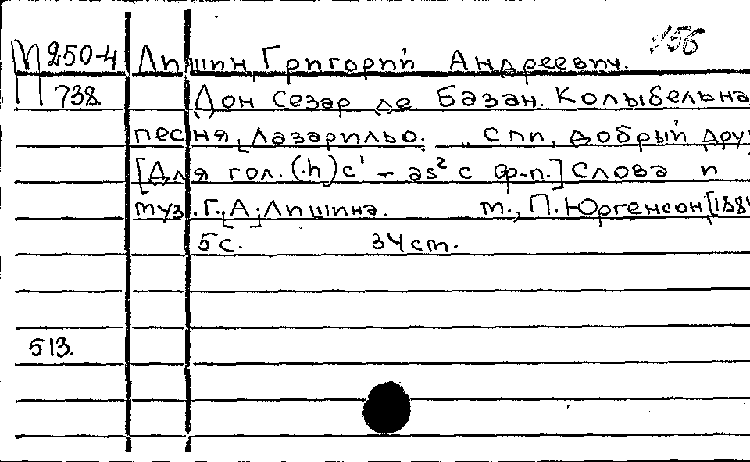 П 250-4 Лишин, Григорий Андреевич. 156
738 Дон Сезар де Базан. Колыбельна
песня Лазарильо. „Спи, добрый друг
[Для гол. (h) c¹ - as² с ф-п.] Слова и
муз. Г. [А.] Лишина. м., П. Юргенсон [188
5 с. 34 cm.
513.